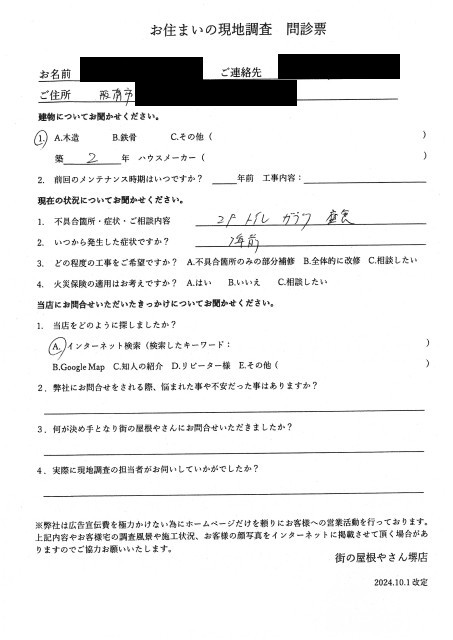 お住まいの現地調査　問診票
お名前　ご連絡先
ご住所　阪南市
建物についてお聞かせください。
1. A.木造　B.鉄骨　C.その他（　）
築 2 年　ハウスメーカー（　）
2. 前回のメンテナンス時期はいつですか？　年前　工事内容：
現在の状況についてお聞かせください。
1. 不具合箇所・症状・ご相談内容　2F トイレ ガラリ
2. いつから発生した症状ですか？　年前
3. どの程度の工事をご希望ですか？　A.不具合箇所のみの部分補修　B.全体的に改修　C.相談したい
4. 火災保険の適用はお考えですか？　A.はい　B.いいえ　C.相談したい
当店にお問合せいただいたきっかけについてお聞かせください。
1. 当店をどのように探しましたか？
A. インターネット検索（検索したキーワード：　）
B.Google Map　C.知人の紹介　D.リピーター様　E.その他（　）
2. 弊社にお問合せをされる際、悩まれた事や不安だった事はありますか？
3. 何が決め手となり街の屋根やさんにお問合せいただきましたか？
4. 実際に現地調査の担当者がお伺いしていかがでしたか？
※弊社は広告宣伝費を極力かけない為にホームページだけを頼りにお客様への営業活動を行っております。
上記内容やお客様宅の調査風景や施工状況、お客様の顔写真をインターネットに掲載させて頂く場合があ
りますのでご協力お願いいたします。
街の屋根やさん堺店
2024.10.1 改定